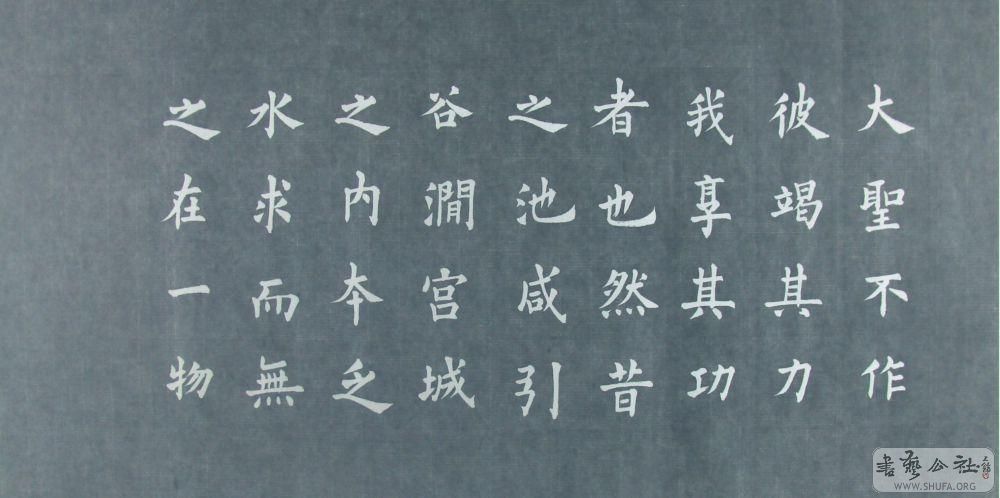 大聖不作
彼竭其力
我享其功
者也然昔
之池咸引
谷澗宮城
之內本乏
水求而無
之在一物
書藝公社
WWW.SHUFA.ORG